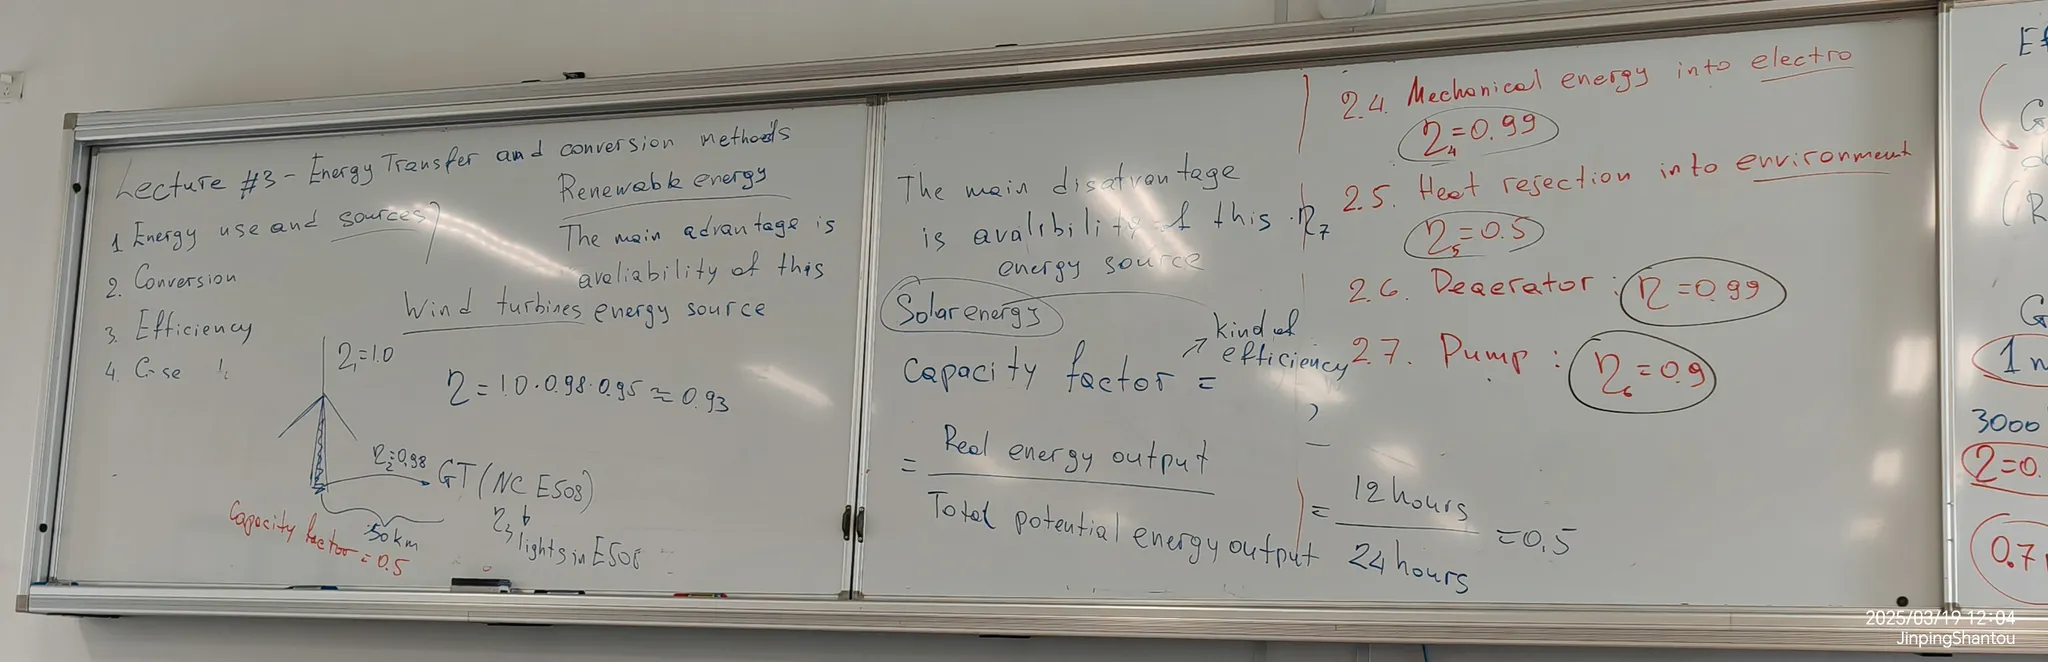 Lecture #3 - Energy Transfer and conversion methods
1 Energy use and sources
2. Conversion
3. Efficiency
4.
Renewable energy
The main advantage is
avaliability of this
energy source
Wind turbines
η₁=1.0
η = 1.0 · 0.98 · 0.95 ≈ 0.93
η₂=0.98
GT (NC E508)
η₃
lights in E508
50 km
Capacity factor = 0.5
The main disatvantage
is avalibility of this
energy source
Solar energy
kind of
efficiency
Capacity factor =
= Real energy output
Total potential energy output
= 12 hours
24 hours
= 0.5
η₇
2.4. Mechanical energy into electro
η₄=0.99
2.5. Heat rejection into environment
η₅=0.5
2.6. Deaerator : η=0.99
2.7. Pump : η₆=0.9
3000
0.7
2025/03/19 12:04
JinpingShantou